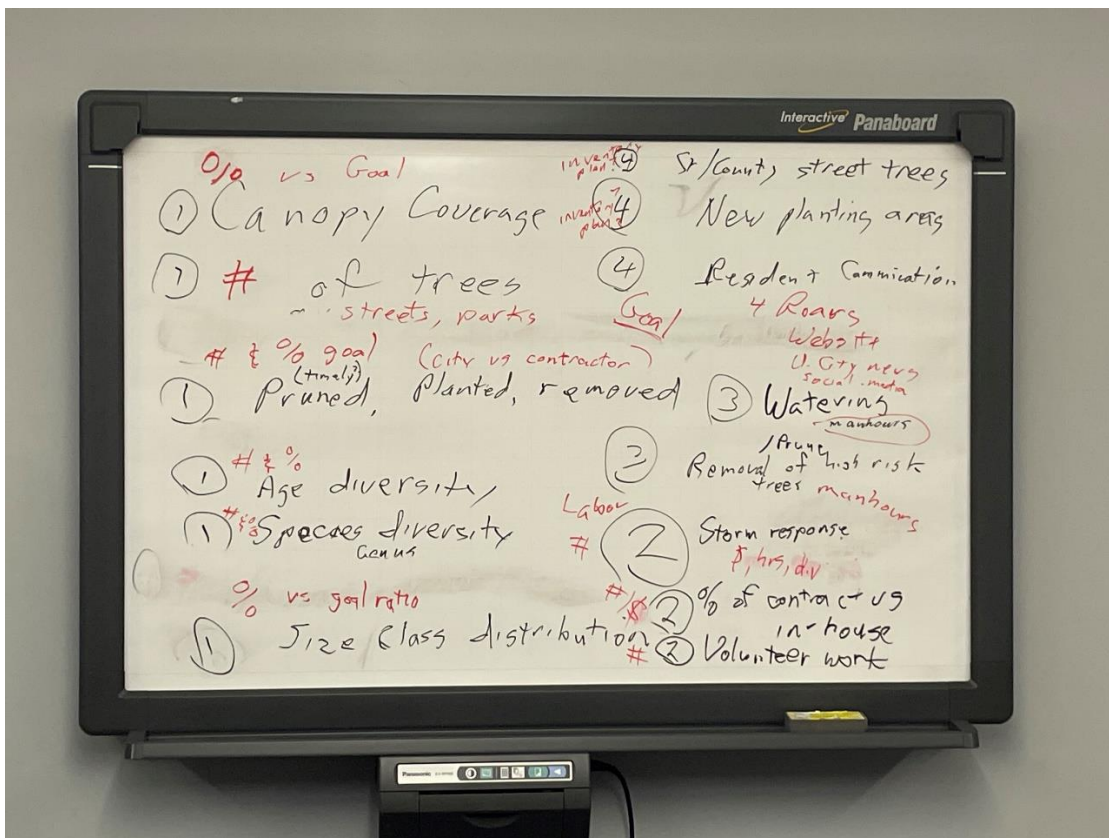 Interactive Panaboard
% vs Goal
① Canopy Coverage
① # of trees
streets, parks
# & % goal (city vs contractor)
(timely?)
① Pruned, Planted, removed
# & %
① Age diversity
① Species diversity
Genus
% vs goal ratio
① Size Class distribution
④ St/County street trees
④ New planting areas
④ Resident Commication
Goal 4 Roars
Website
U. City news
social media
③ Watering
manhours
/Prune
③ Removal of high risk
trees manhours
Labor
# ② Storm response
$, hrs, div
#/$ ② % of contract vs
in-house
# ② Volunteer work
Panasonic